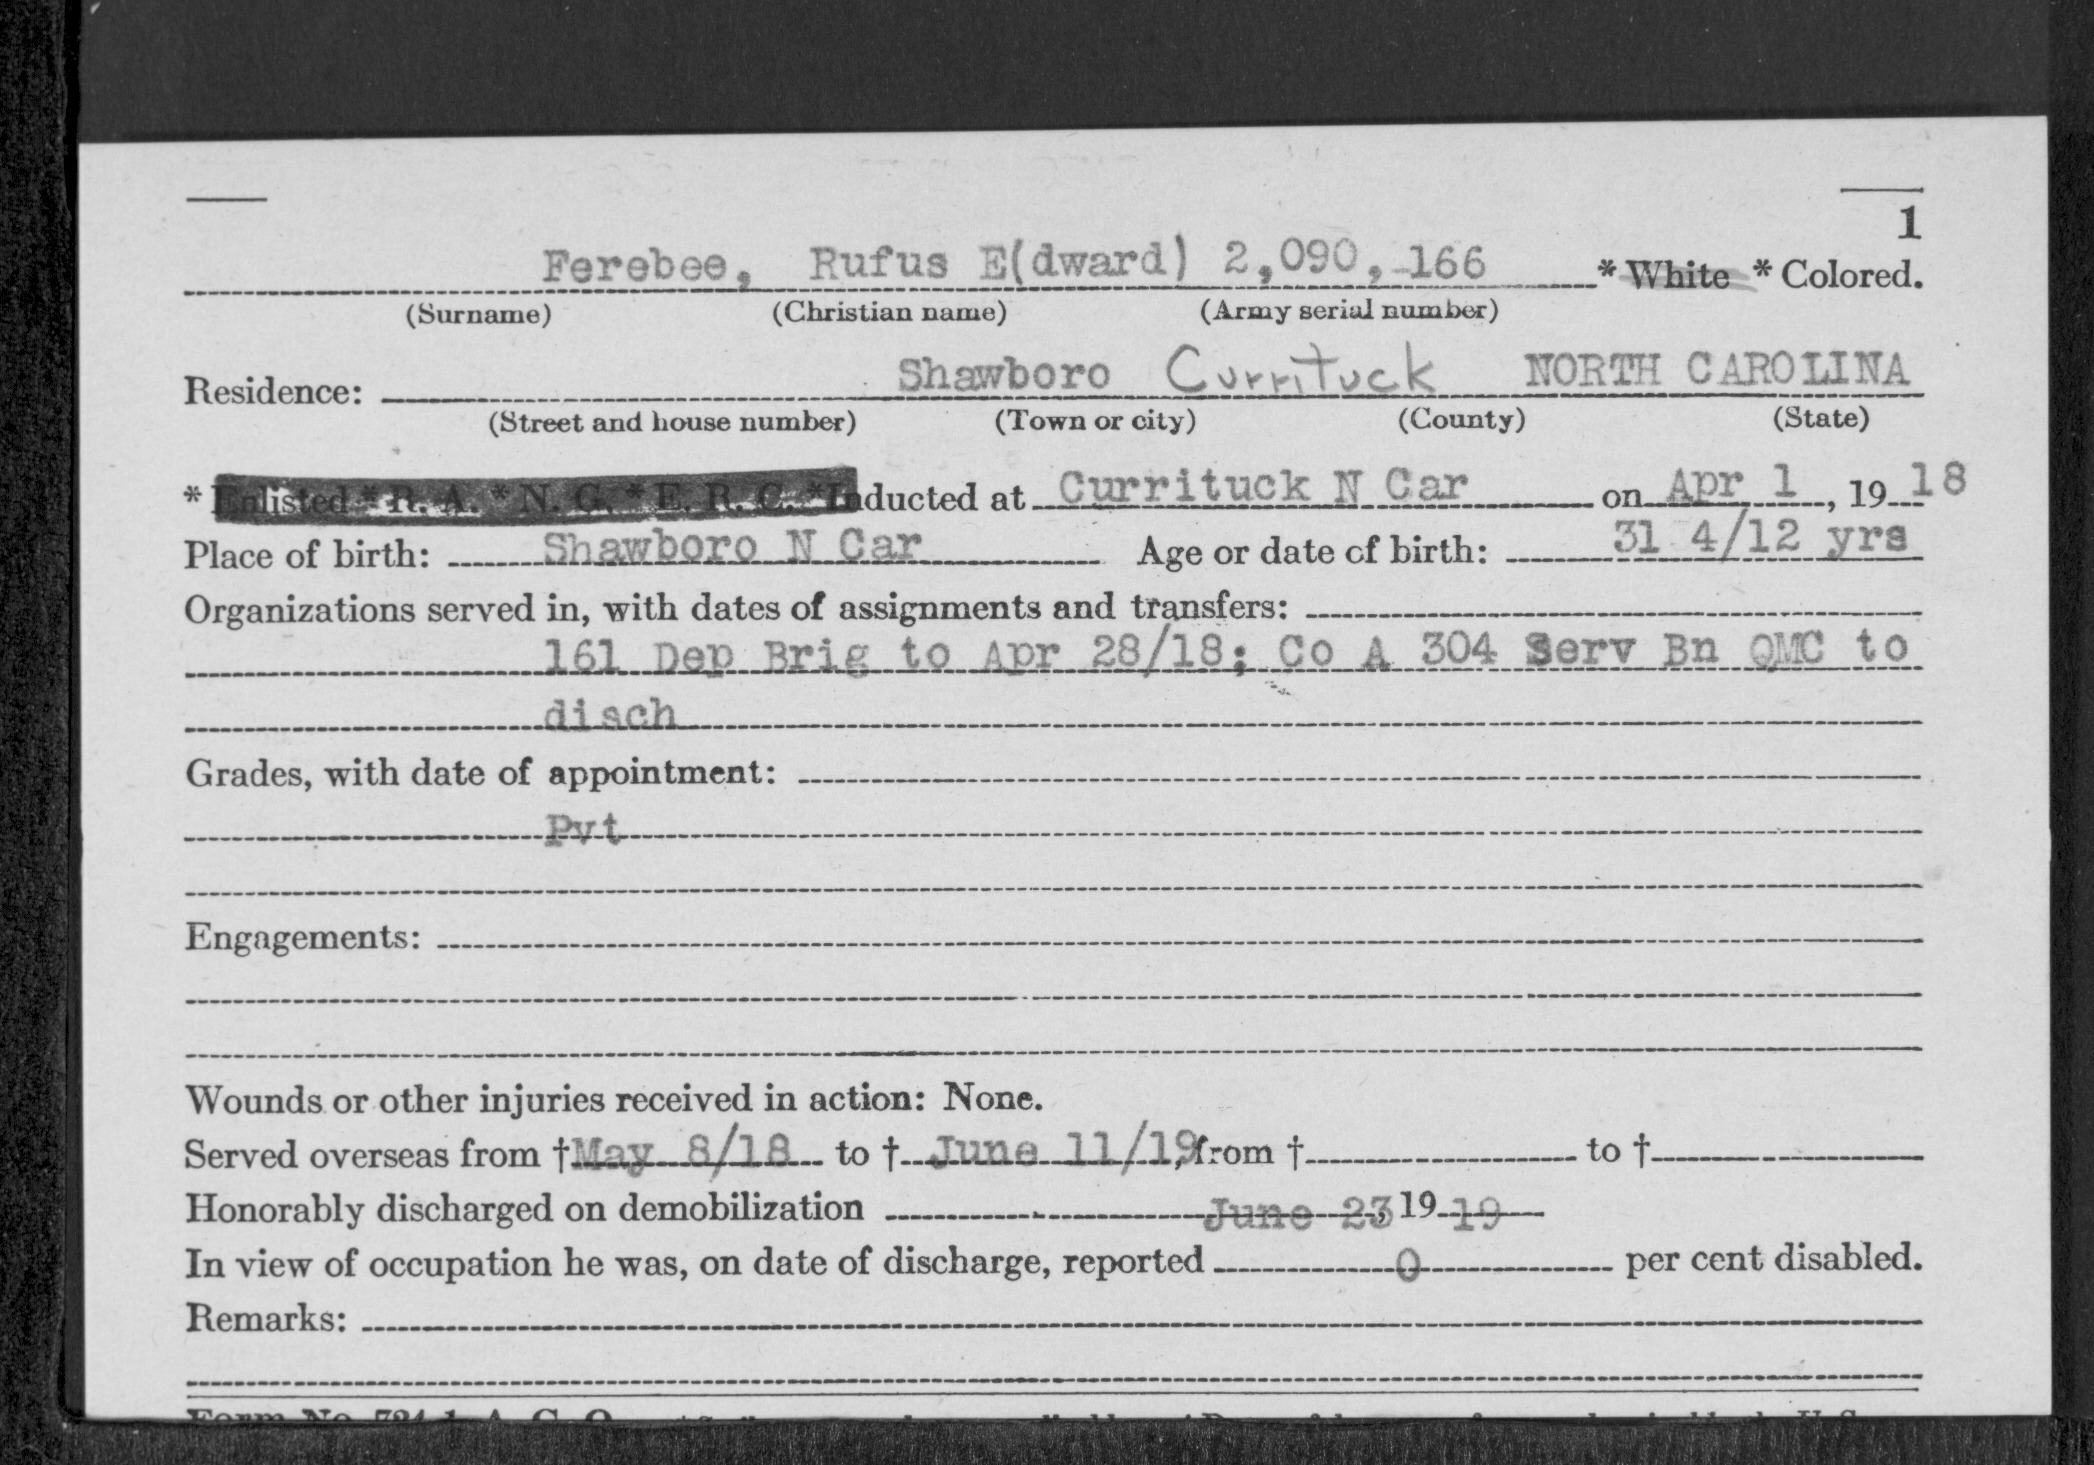 1
Ferebee, Rufus E(dward) 2,090,166 * White * Colored.
(Surname) (Christian name) (Army serial number)
Residence: Shawboro Currituck NORTH CAROLINA
(Street and house number) (Town or city) (County) (State)
* Enlisted * R. A. * N. G. * E. R. C. * Inducted at Currituck N Car on Apr 1, 19 18
Place of birth: Shawboro N Car Age or date of birth: 31 4/12 yrs
Organizations served in, with dates of assignments and transfers:
161 Dep Brig to Apr 28/18; Co A 304 Serv Bn QMC to
disch
Grades, with date of appointment:
Pvt
Engagements:
Wounds or other injuries received in action: None.
Served overseas from † May 8/18 to † June 11/19, from † to †
Honorably discharged on demobilization June 23, 19 19
In view of occupation he was, on date of discharge, reported 0 per cent disabled.
Remarks:
Form No. 724-1, A. G. O.